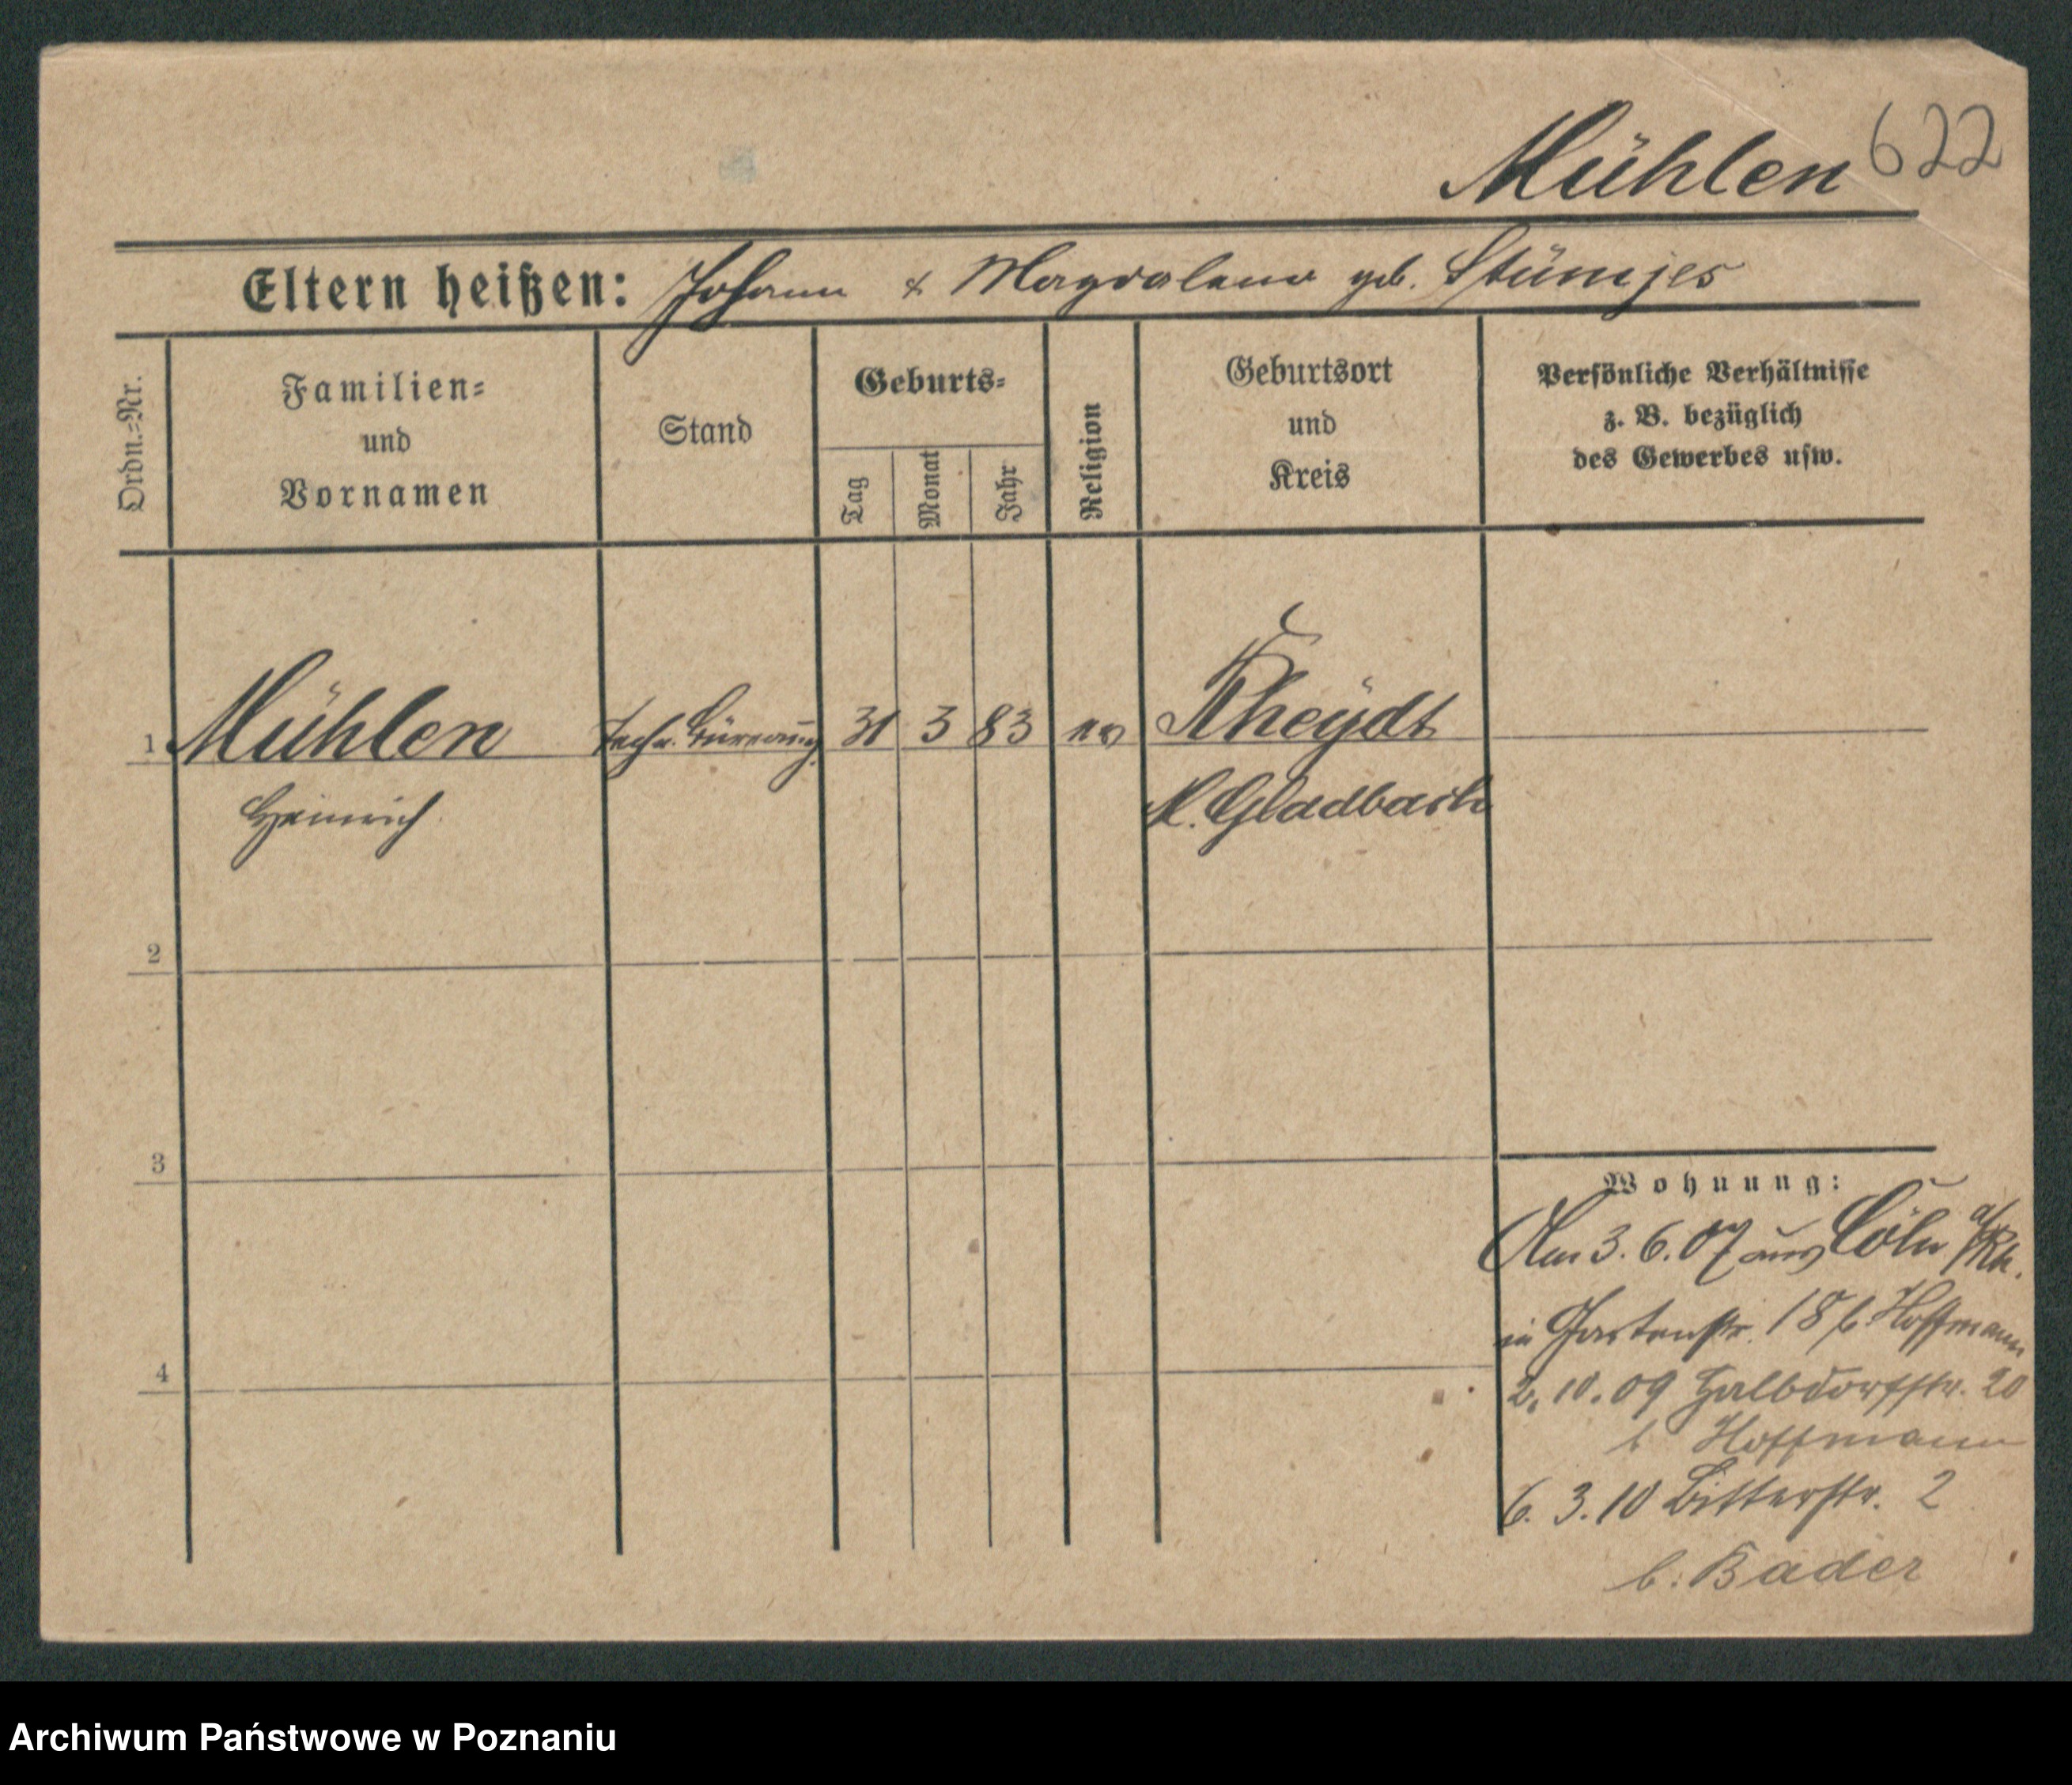 Mühlen 622
Eltern heißen: Johann & Magdalena geb. Stümjes
Ordn.=Nr.
Familien=
und
Vornamen
Stand
Geburts=
Tag
Monat
Jahr
Religion
Geburtsort
und
Kreis
Persönliche Verhältnisse
z. B. bezüglich
des Gewerbes usw.
1 Mühlen Techn. 31 3 83 ev Rheydt
Heinrich M. Gladbach
2
3
4
Wohnung:
Am 3. 6. 07 aus Cöln a/Rh.
in Gartenstr. 18 b. Hoffmann
2. 10. 09 Halbdorfstr. 20
b Hoffmann
6. 3. 10 Bitterstr. 2
b. Bader
Archiwum Państwowe w Poznaniu